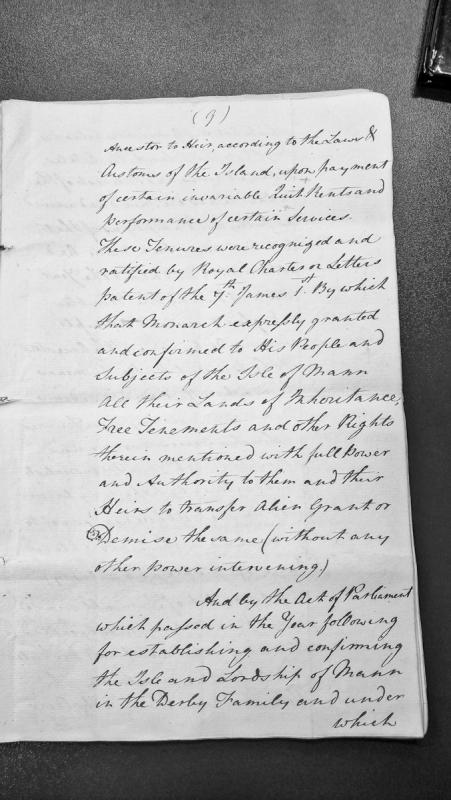 (9)
Ancestor to Heir, according to the Laws &
Customs of the Island, upon payment
of certain invariable Quit Rents and
performance of certain Services.
These Tenures were recognized and
ratified by Royal Charter or Letters
patent of the 7th. James 1st. By which
that Monarch expressly granted
and confirmed to His People and
Subjects of the Isle of Mann
All their Lands of Inheritance,
Free Tenements and other Rights
therein mentioned with full Power
and Authority to them and their
Heirs to transfer Alien Grant or
Demise the same (without any
other power intervening)
And by the Act of Parliament
which passed in the Year following
for establishing and confirming
the Isle and Lordship of Mann
in the Derby Family and under
which